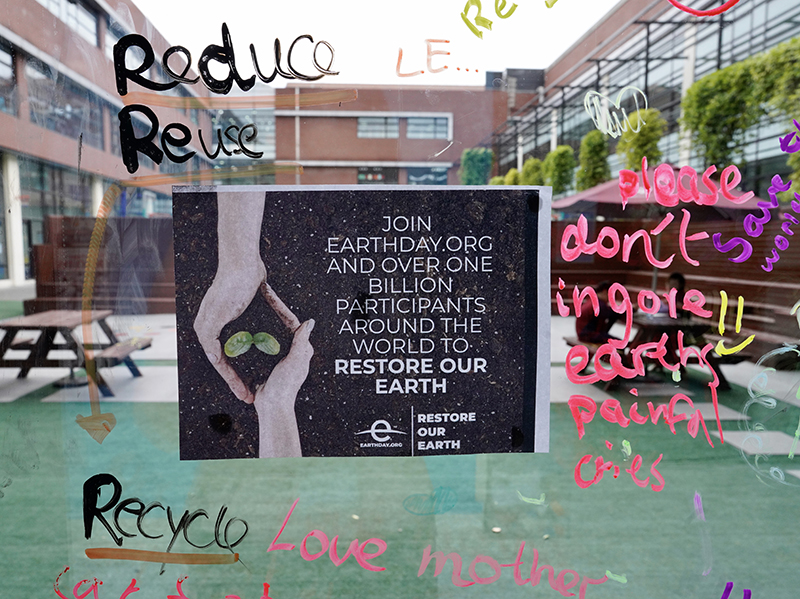 Reduce
LE...
Reuse
JOIN
EARTHDAY.ORG
AND OVER ONE
BILLION
PARTICIPANTS
AROUND THE
WORLD TO
RESTORE OUR
EARTH
e
EARTHDAY.ORG
RESTORE
OUR
EARTH
please
don't
ingore
earths
painful
cries
!!
Save
Recycle
Love mother